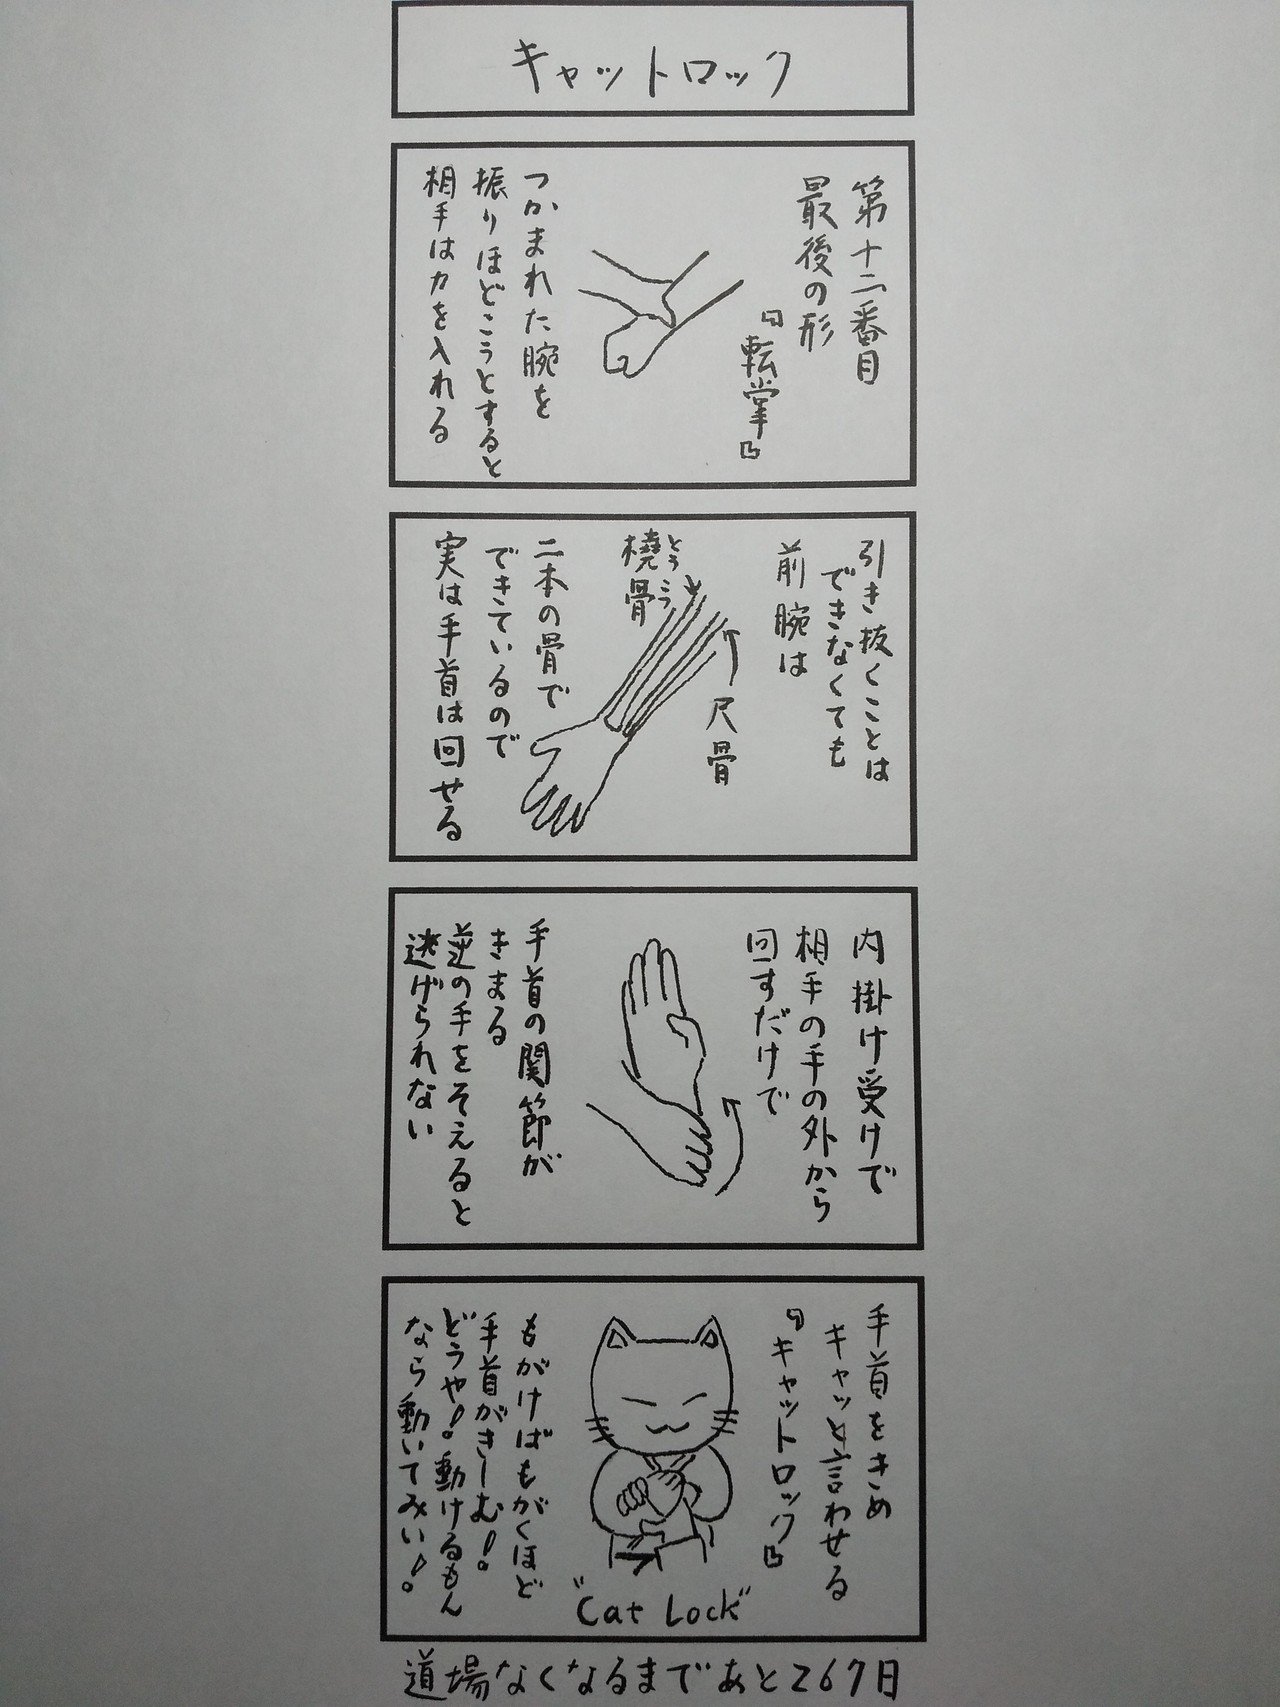 キャットロック
第十二番目
最後の形
『転掌』
つかまれた腕を
振りほどこうとすると
相手は力を入れる
引き抜くことは
できなくても
前腕は
尺骨
橈骨
とうこつ
二本の骨で
できているので
実は手首は回せる
内掛け受けで
相手の手の外から
回すだけで
手首の関節が
きまる
逆の手をそえると
逃げられない
手首をきめ
キャッと言わせる
『キャットロック』
"Cat Lock"
もがけばもがくほど
手首がきーむ!
どうや!動けるもん
なら動いてみい!
道場なくなるまであと267日